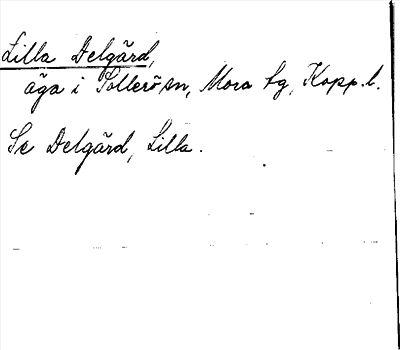 Lilla Delgärd,
äga i Sollerö sn, Mora tg, Kopp. l.
Se Delgärd, Lilla.